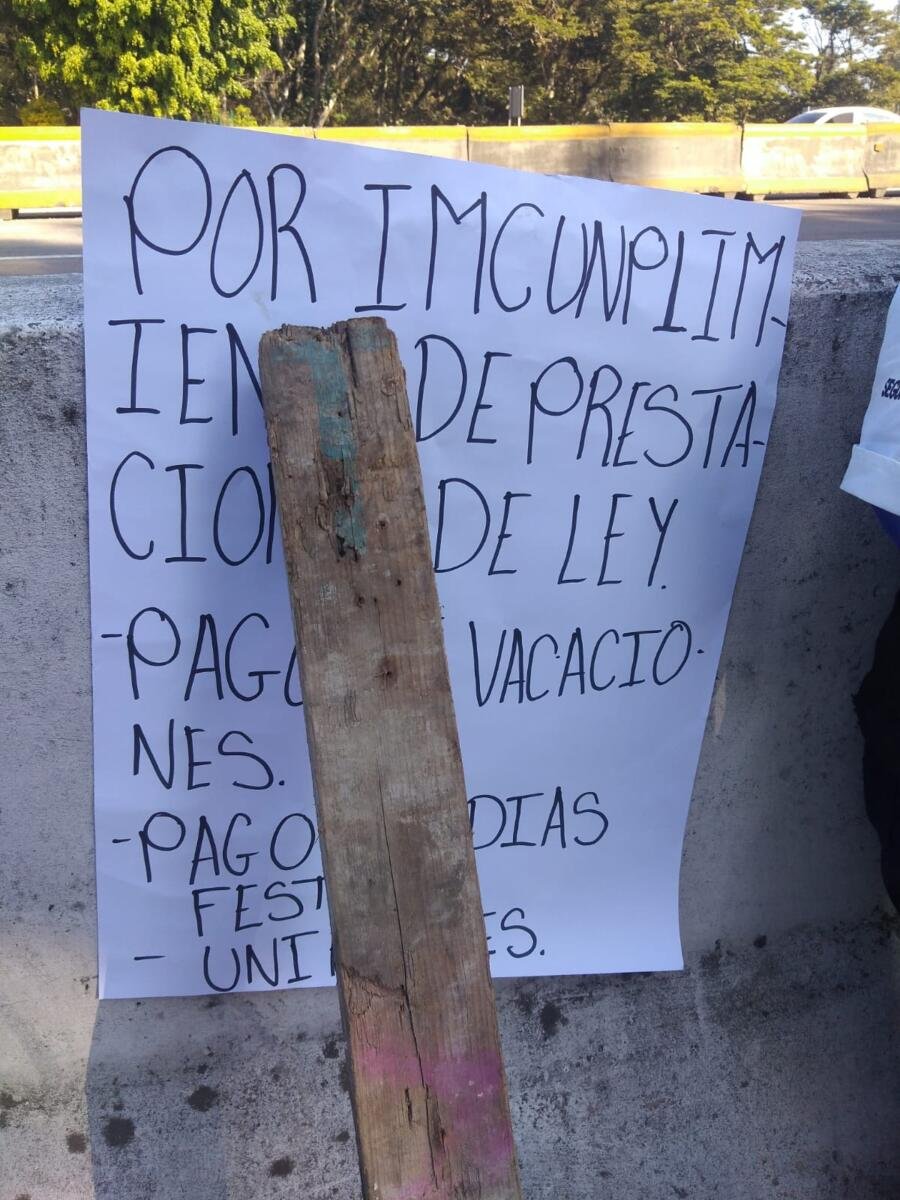 POR IMCUNPLIM-
IEN DE PRESTA-
CION DE LEY.
-PAGO VACACIO-
NES.
-PAGO DIAS
FEST
- UNI ES.